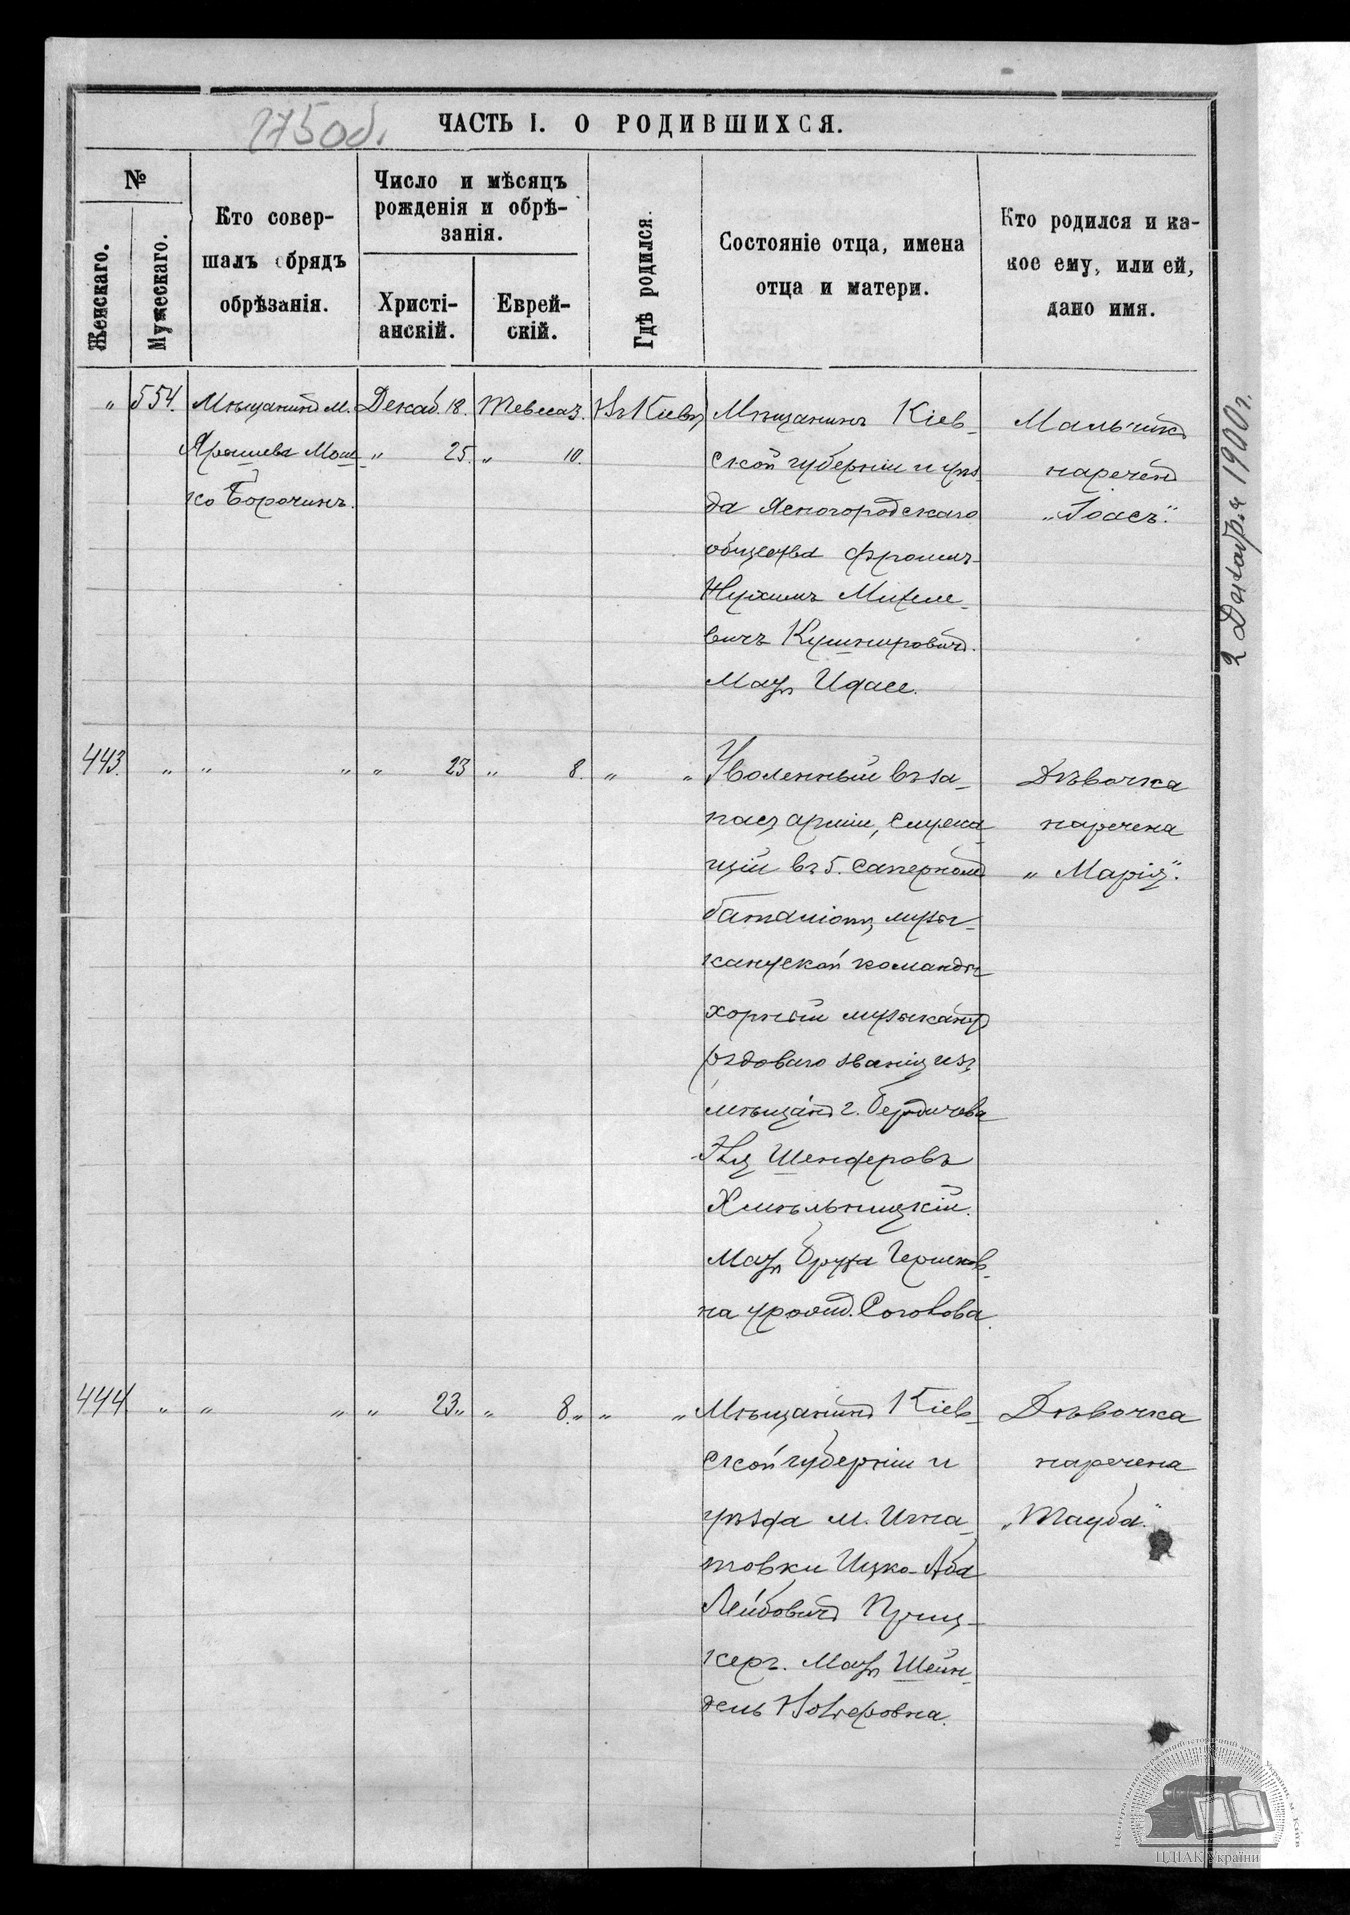 275об.
ЧАСТЬ I. О РОДИВШИХСЯ.
№
Женскаго.
Мужескаго.
Кто совер-
шалъ обрядъ
обрѣзанія.
Число и мѣсяцъ
рожденія и обрѣ-
занія.
Христі-
анскій.
Еврей-
скій.
Гдѣ родился.
Состояніе отца, имена
отца и матери.
Кто родился и ка-
кое ему, или ей,
дано имя.
" 554.
Мѣщанинъ м.
Ярышева Мош-
ко Борочинъ.
Декаб 18.
" 25.
Тевеса 3.
" 10.
Въ Кіевѣ
Мѣщанинъ Кіев-
ской губерніи и уѣз
да Ясногородскаго
общества Фроим-
Нухимъ Михеле-
вичъ Кушнировичъ.
Мать Идасе.
Мальчикъ
нареченъ
"Іоасъ".
443. " " " " 23 " 8. " "
Уволенный въ за-
пасъ арміи, служа-
щій въ 5. саперномъ
баталіонѣ, музы-
кантской команды
хорный музыкантъ
рядоваго званія изъ
мѣщанъ г. Бердичева
Шендеровъ
Хмѣльницкій.
Мать Буза Гершков-
на урожд. Соголова.
Дѣвочка
наречена
"Марія".
444 " " " " 23 " 8. " "
Мѣщанинъ Кіев-
ской губерніи и
уѣзда м. Игна-
товки Ицко-Аба
Лейбовичъ Приц-
керъ. Мать Шейн-
дель
Дѣвочка
наречена
"Тауба".
2 Октября 1900 г.
ЦДІАК України